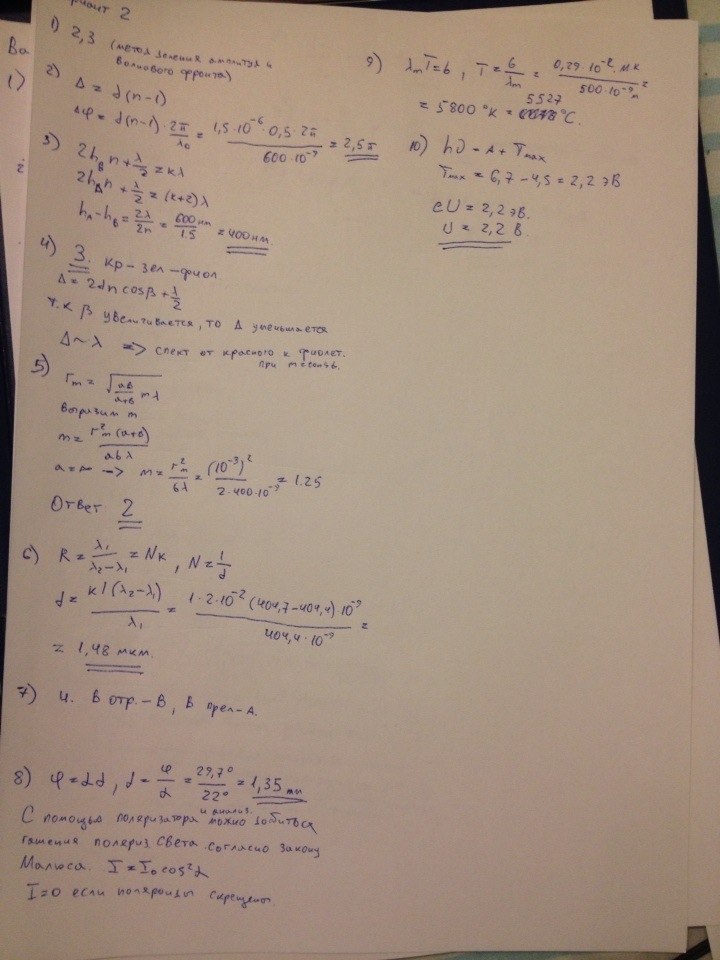 риант 2
Ва
1)
1) 2,3 (метод деления амплитуд и
волнового фронта)
2) Δ = d(n-1)
Δφ = d(n-1) · 2π/λ₀ = 1,5·10⁻⁶·0,5·2π / 600·10⁻⁹ = 2,5π
3) 2h_B n + λ/2 = kλ
2h_A n + λ/2 = (k+2)λ
h_A - h_B = 2λ/2n = 600 нм/1.5 = 400 нм
4) 3. кр-зел-фиол.
Δ = 2dn cosβ + λ/2
т.к β увеличивается, то Δ уменьшается
Δ ~ λ => спект от красного к фиолет.
при m=const.
5) r_m = √(ab/(a+b) mλ)
выразим m
m = r²_m (a+b) / abλ
a = ∞ -> m = r²_m/bλ = (10⁻³)² / 2·400·10⁻⁹ = 1.25
Ответ 2
6) R = λ₁/(λ₂-λ₁) = Nk, N = 1/d
d = k l (λ₂-λ₁) / λ₁ = 1·2·10⁻² (404,7-404,4)·10⁻⁹ / 404,4·10⁻⁹ =
= 1,48 мкм
7) 4. В отр.-В, в прел-А.
8) φ = αd, d = φ/α = 29,7°/22° = 1,35 мм
С помощью поляризатора и анализ. можно добиться
гашения поляриз света согласно закону
Малюса. I = I₀ cos²α
I=0 если поляроиды скрещены
9) λ_m T = b, T = b/λ_m = 0,29·10⁻² м·К / 500·10⁻⁹ м =
= 5800 °K = 5527 °C.
10) hν = A + T_max
T_max = 6,7 - 4,5 = 2,2 эВ
eU = 2,2 эВ.
U = 2,2 В.